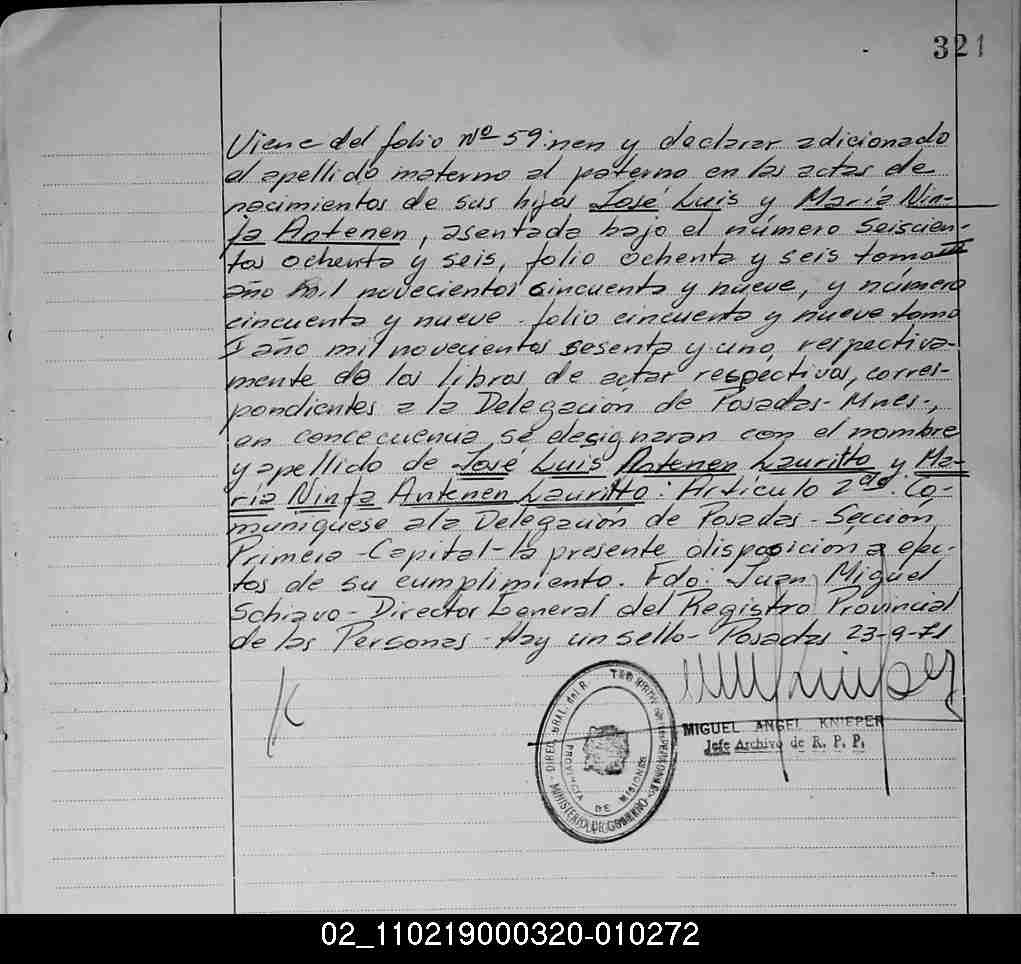 321
Viene del folio Nº 59: nen y declarar adicionado
el apellido materno al paterno en las actas de
nacimientos de sus hijos José Luis y María Nin-
fa Antenen, asentada bajo el número Seiscien-
tos ochenta y seis, folio ochenta y seis tomo II
año mil novecientos cincuenta y nueve, y número
cincuenta y nueve - folio cincuenta y nueve tomo
I año mil novecientos sesenta y uno, respectiva-
mente de los libros de actas respectivos, corres-
pondientes a la Delegación de Posadas - Mnes.,
en concecuencia se designaran con el nombre
y apellido de José Luis Antenen Lauritto y Ma-
ría Ninfa Antenen Lauritto: Artículo 2do. Co-
muniquese a la Delegación de Posadas - Sección
Primera - Capital - la presente disposicion a efec-
tos de su cumplimiento. Fdo: Juan Miguel
Schiavo - Director General del Registro Provincial
de las Personas - Hay un sello - Posadas 23-9-71
MIGUEL ANGEL KNIEPER
Jefe Archivo de R. P. P.
PROVINCIA DE MISIONES
MINISTERIO DE GOBIERNO
02_110219000320-010272